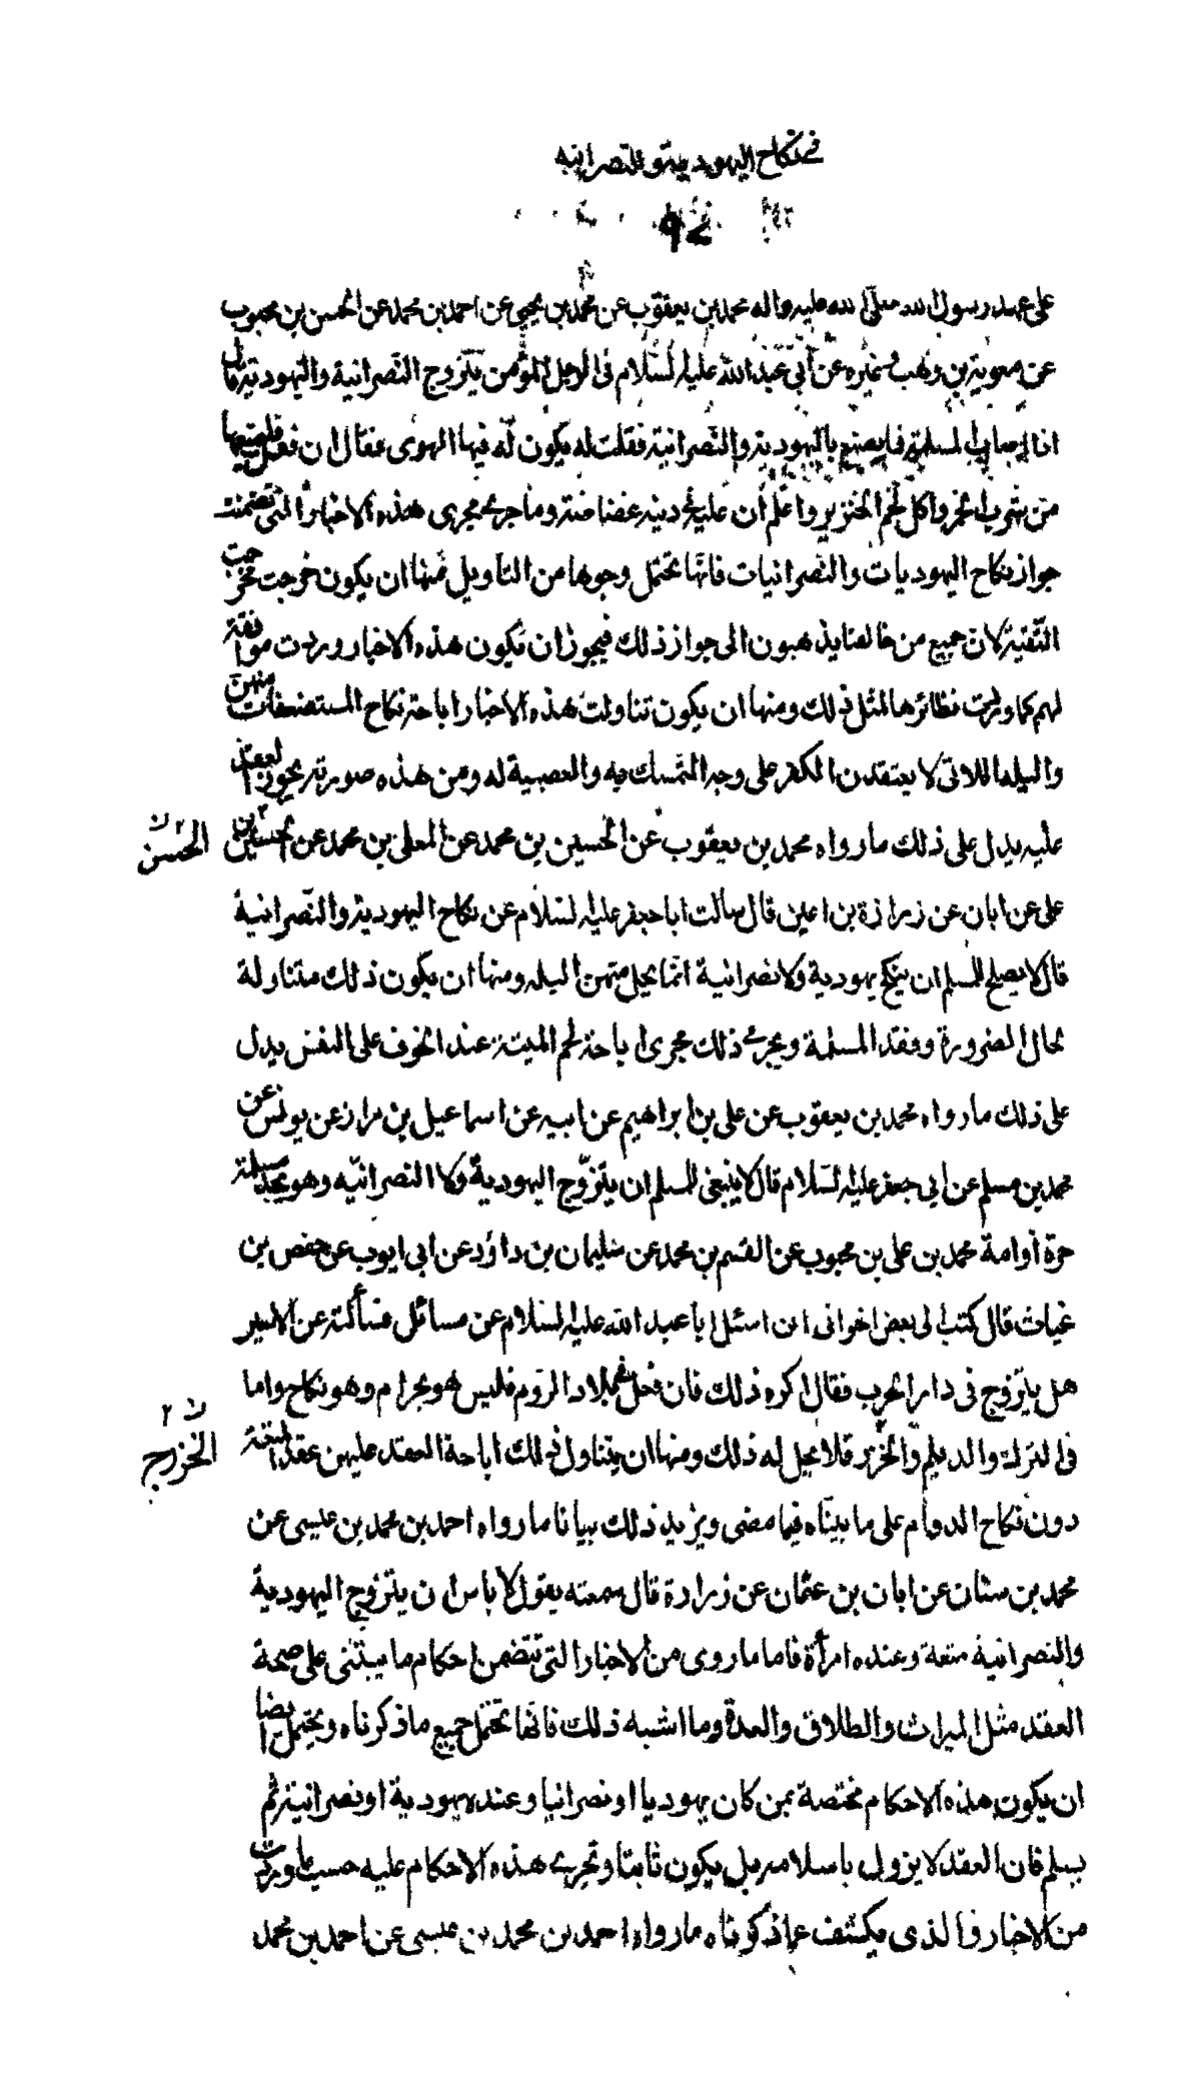 في نكاح اليهودية والنصرانية
٩٤
على عهد رسول الله صلى الله عليه واله محمد بن يعقوب عن محمد بن يحيى عن احمد بن محمد عن الحسن بن محبوب
عن معوية بن وهب وغيره عن أبي عبد الله عليه السّلام فى الرجل المؤمن يتزوج النّصرانية واليهودية قال
اذا اصاب المسلمة فما يصنع باليهودية والنّصرانية فقلت له يكون له فيها الهوى فقال ان فعل فليمنعها
من شرب الخمر واكل لحم الخنزير واعلم ان عليه في دينه غضاضة وما جرى مجرى هذه الاخبار التي تضمنت
جواز نكاح اليهوديات والنصرانيات فانّها تحتمل وجوها من التاويل منها ان يكون خرجت مخرجت
التّقية لان جميع من خالفنا يذهبون الى جواز ذلك فيجوز ان تكون هذه الاخبار وردت موافقة
لهم كما وردت نظائرها لمثل ذلك ومنها ان يكون تناولت هذه الاخبار اباحة نكاح المستضعفات منهن
والبله اللاتى لا يعتقدن الكفر على وجه التمسك به والعصبية له ومن هذه صورته يجوز العقد
عليه يدل على ذلك ما رواه محمد بن يعقوب عن الحسين بن محمد عن المعلى بن محمد عن الحسين بن
الحسن ن ٢
على عن ابان عن زرارة بن اعين قال سالت ابا جعفر عليه السّلام عن نكاح اليهودية والنّصرانية
قال لا يصلح للمسلم ان ينكح يهودية ولا نصرانية انّما يحل منهن البله ومنها ان يكون ذلك متناولة
بحال الضرورة وفقد المسلمة ويجري ذلك مجرى اباحة لحم الميتة عند الخوف على النفس يدل
على ذلك ما رواه محمد بن يعقوب عن على بن ابراهيم عن ابيه عن اسماعيل بن مرار عن يونس عن
محمد بن مسلم عن ابى جعفر عليه السّلام قال لا ينبغى للمسلم ان يتزوّج اليهودية ولا النصرانيّه وهو يجد مسلمة
حرة أو امة محمد بن على بن محبوب عن القسم بن محمد عن سليمان بن داود عن ابى ايوب عن حفص بن
غياث قال كتب الى بعض اخوانى ان اسئل ابا عبد الله عليه السّلام عن مسائل فسألته عن الاسير
هل يتزوج فى دار الحرب فقال اكره ذلك فان فعل فى بلاد الرّوم فليس هو بحرام وهو نكاح واما
فى الترك والديلم والخزر فلا يحل له ذلك ومنها ان يتناول ذلك اباحة العقد عليهن عقد المتعة
الخزرج ن ٢
دون نكاح الدوام على ما بيّناه فيما مضى ويزيد ذلك بيانا ما رواه احمد بن محمد بن عيسى عن
محمد بن سنان عن ابان بن عثمان عن زرارة قال سمعته يقول لا باس ان يتزوج اليهودية
والنصرانية متعة وعنده امرأة فاما ما روى من الاخبار التى تتضمن احكام ما يبتنى على صحة
العقد مثل الميراث والطلاق والعدة وما اشبه ذلك فانها تحتمل جميع ما ذكرناه ويحتمل ايضا
ان يكون هذه الاحكام مختصة بمن كان يهوديا او نصرانيا وعنده يهودية او نصرانية ثم
يسلم فان العقد لا يزول باسلامه بل يكون ثابتا وتجري هذه الاحكام عليه حسب ما وردت
من الاخبار فالذى يكشف عما ذكرناه ما رواه احمد بن محمد بن عيسى عن احمد بن محمد